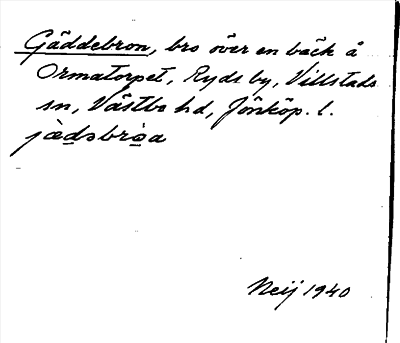 Gäddebron, bro över en bäck å
Ormatorpet, Ryds by, Villstads
sn, Västbo hd, Jönköp. l.
jæ̀dəbrò̤a
Neij 1940